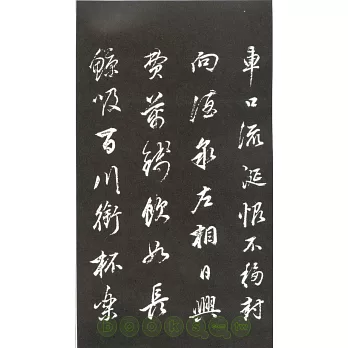 車口流涎恨不移封
向酒泉左相日興
費萬錢飲如長
鯨吸百川銜杯樂